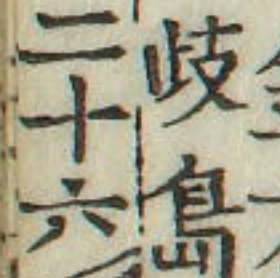 歧島
二十六